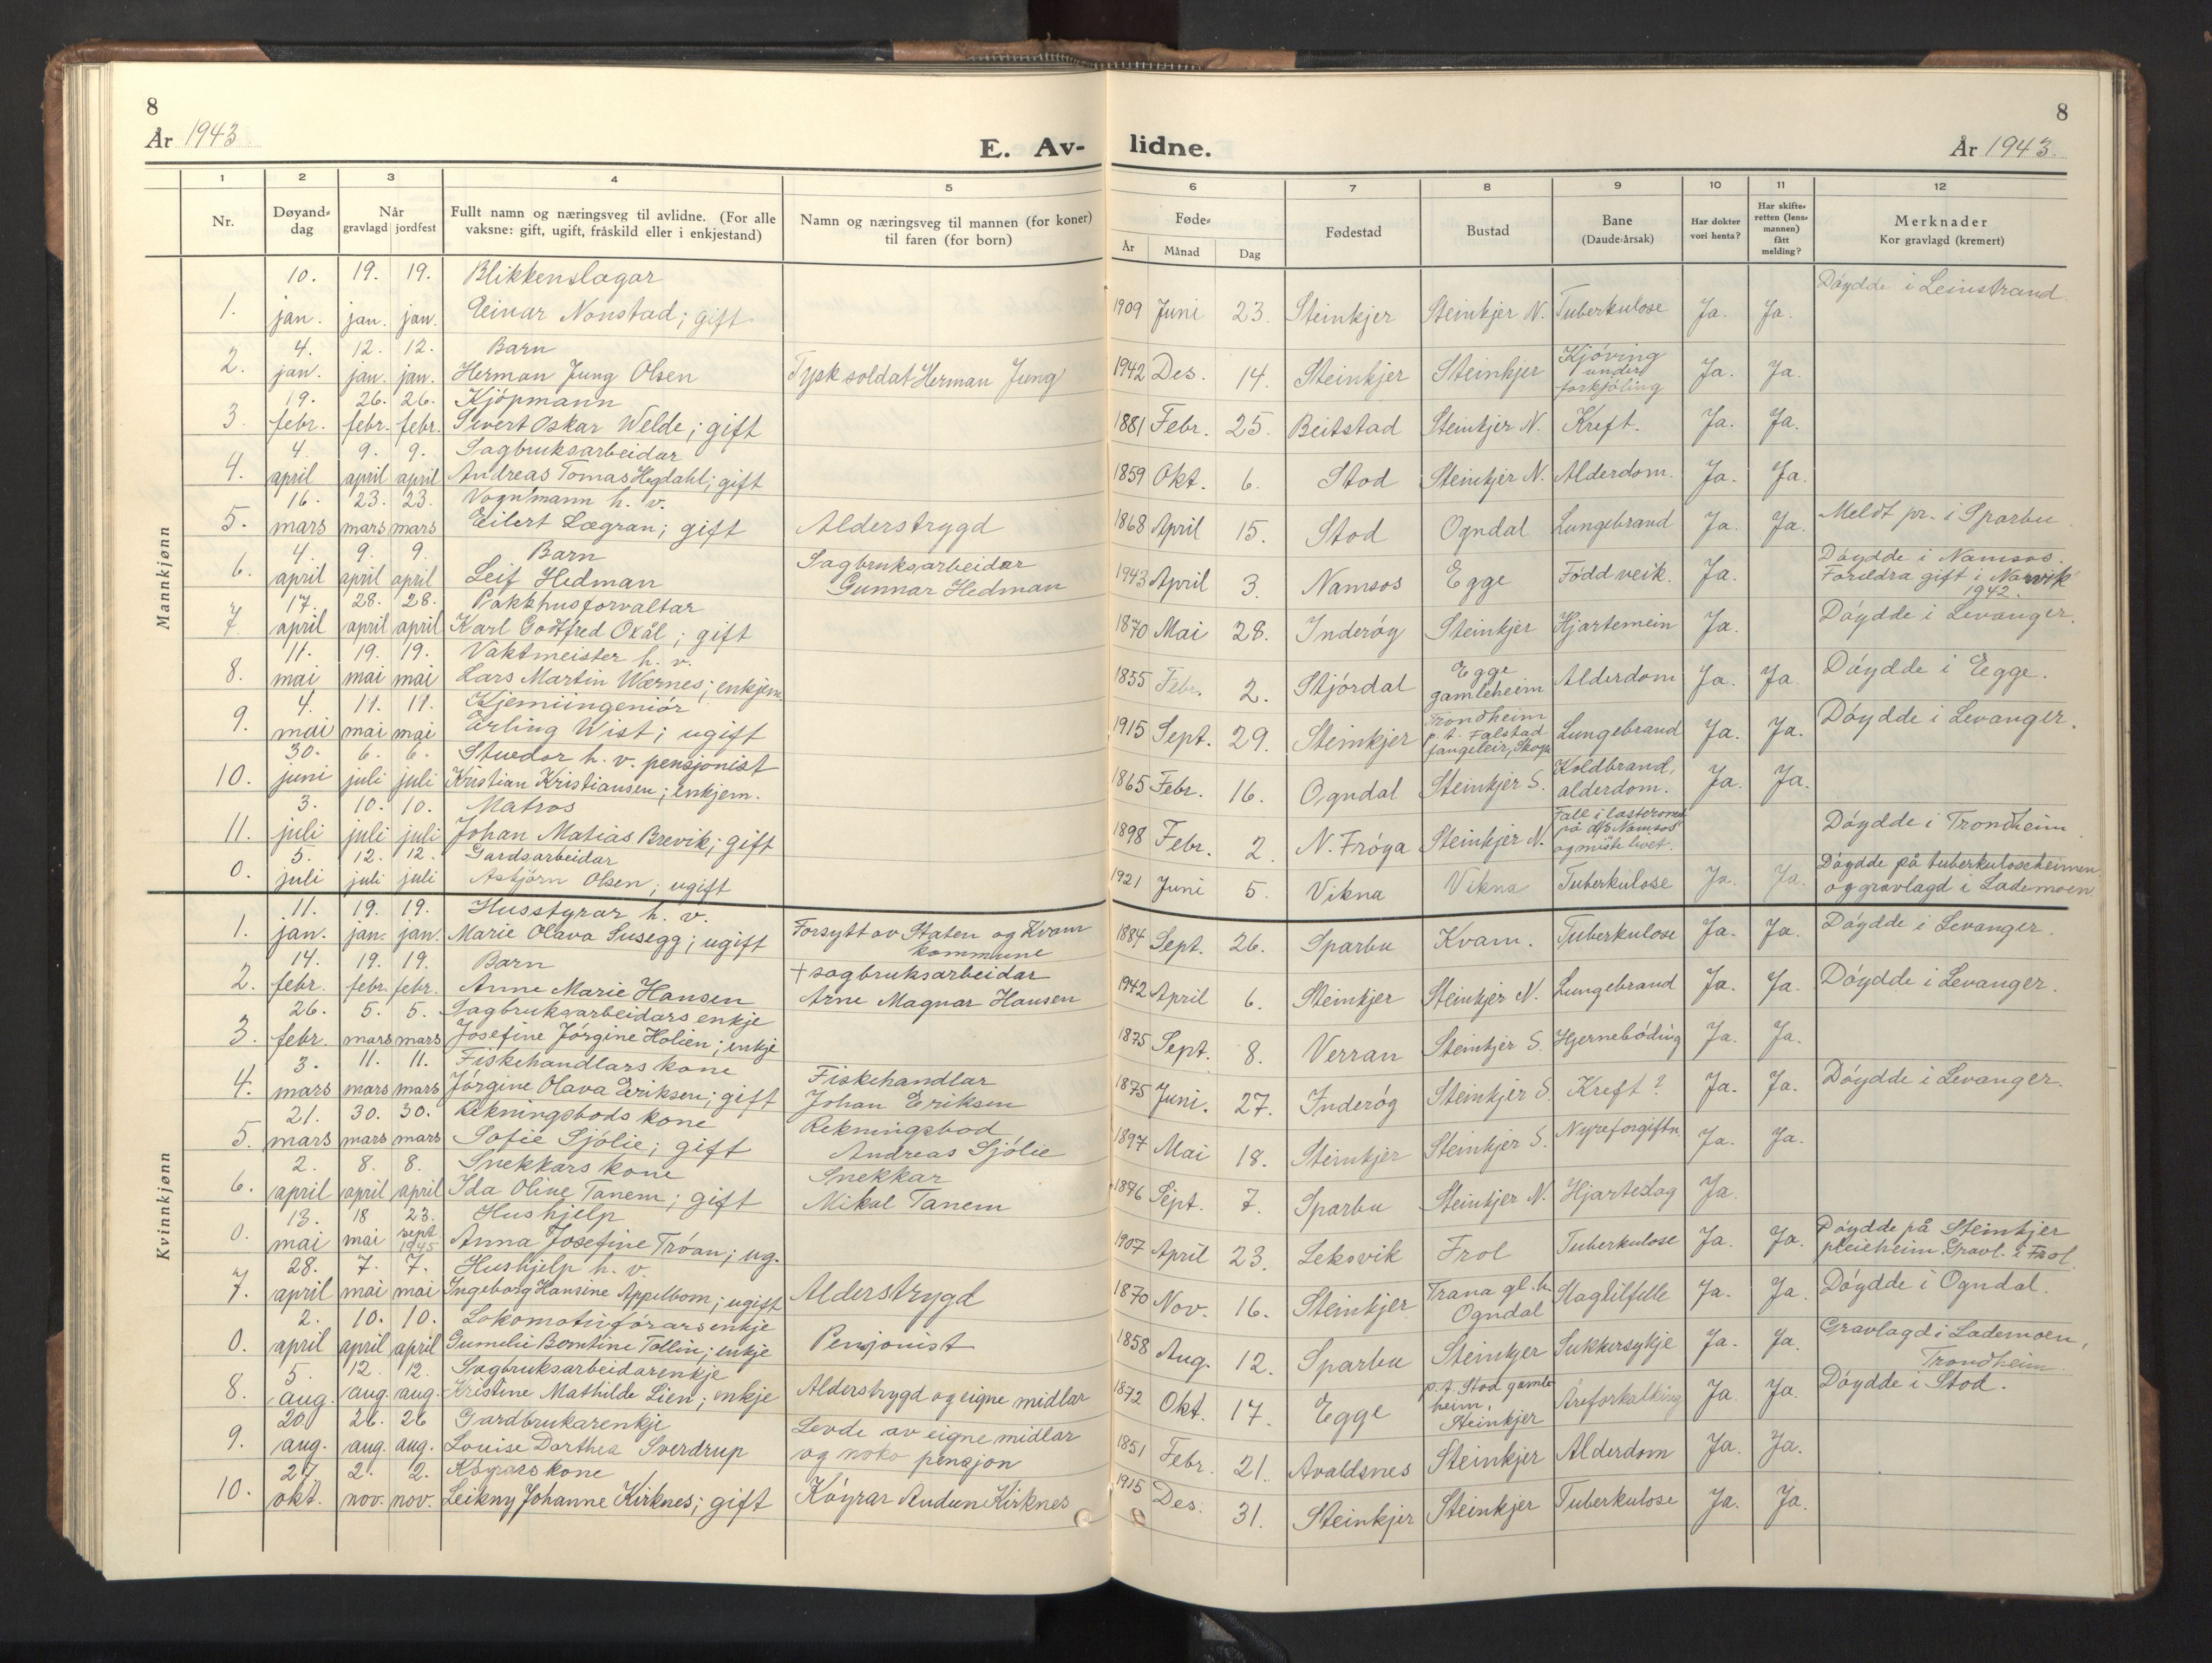 8
År 1943
E. Av-
lidne.
8
År 1943.
1
2
3
4
5
6
7
8
9
10
11
12
Nr.
Døyand-
dag
Når
gravlagd jordfest
Fullt namn og næringsveg til avlidne. (For alle
vaksne: gift, ugift, fråskild eller i enkjestand)
Namn og næringsveg til mannen (for koner)
til faren (for born)
Føde-
År Månad Dag
Fødestad
Bustad
Bane
(Daude-årsak)
Har dokter
vori henta?
Har skifte-
retten (lens-
mannen)
fått
melding?
Merknader
Kor gravlagd (kremert)
Mannkjønn
10. 19. 19. Blikkenslagar Döydde i Leinstrand
1. jan. jan. jan. Einar Nonstad; gift 1909 Juni 23. Steinkjer Steinkjer N. Tuberkulose Ja. Ja.
4. 12. 12. Barn Kjöving
2. jan. jan. jan. Herman Jung Olsen Tysk soldat Herman Jung 1942 Des. 14. Steinkjer Steinkjer under Ja. Ja.
forkjöling
19. 26. 26. Kjöpmann
3. febr. febr. febr. Sivert Oskar Welde; gift 1881 Febr. 25. Beitstad Steinkjer N. Kreft. Ja. Ja.
4. 9. 9. Sagbruksarbeidar
4. april april april Andreas Tomas Hegdahl; gift 1859 Okt. 6. Stod Steinkjer N. Alderdom. Ja. Ja.
16. 23. 23. Vognmann h. v.
5. mars mars mars Eilert Lægran; gift Alderstrygd 1868 April 15. Stod Ogndal Lungebrand Ja. Ja. Meldt pr. i Sparbu
4. 9. 9. Barn Sagbruksarbeidar Döydde i Namsos.
6. april april april Leif Hedman Gunnar Hedman 1943 April 3. Namsos Egge Född veik. Ja. Foreldra gift i Narvik
1942.
17. 28. 28. Pakkhusforvaltar
7. april april april Karl Godtfred Okål; gift 1870 Mai 28. Inderöy Steinkjer Hjartemein Ja. Döydde i Levanger.
11. 19. 19. Vaktmeister h. v. Egge
8. mai mai mai Lars Martin Wærnes; enkjem. 1855 Febr. 2. Stjördal gamleheim Alderdom Ja. Ja. Döydde i Egge.
4. 11. 11. Kjemiingeniör Trondheim
9. mai mai mai Erling Wist; ugift 1915 Sept. 29. Steinkjer p. t. Falstad Lungebrand Ja. Ja. Döydde i Levanger.
fangeleir, Skogn
30. 6. 6. Stuedor h. v. pensjonist Koldbrand,
10. juni juli juli Kristian Kristiansen; enkjem. 1865 Febr. 16. Ogndal Steinkjer S. alderdom. Ja. Ja.
3. 10. 10. Matros Fall i lasterommet
11. juli juli juli Johan Matias Brevik; gift 1898 Febr. 2. N. Fröya Steinkjer N. på d/s Namsos Döydde i Trondheim
og miste livet.
5. 12. 12. Gardsarbeidar Döydde på tuberkuloseheimen
0. juli juli juli Asbjörn Olsen; ugift 1921 Juni 5. Vikna Vikna Tuberkulose Ja. Ja. og gravlagd i Lademoen
Kvinnkjønn
11. 19. 19. Husstyrar h. v. Forsytt av Staten og Kvam
1. jan. jan. jan. Marie Olava Susegg; ugift kommune 1884 Sept. 26. Sparbu Kvam. Tuberkulose Ja. Ja. Döydde i Levanger.
14. 19. 19. Barn + sagbruksarbeidar
2. febr. febr. febr. Anne Marie Hansen Arne Magnar Hansen 1942 April 6. Steinkjer Steinkjer N. Lungebrand Ja. Ja. Döydde i Levanger.
26. 5. 5. Sagbruksarbeidars enkje
3. febr. mars mars Josefine Jörgine Holien; enkje 1875 Sept. 8. Verran Steinkjer S. Hjernebödnig Ja. Ja.
3. 11. 11. Fiskehandlars kone Fiskehandlar
4. mars mars mars Jörgine Olava Eriksen; gift Johan Eriksen 1875 Juni. 27. Inderöy Steinkjer S. Kreft? Ja. Ja. Döydde i Levanger.
21. 30. 30. Rekningsbods kone Rekningsbod
5. mars mars mars Sofie Sjölie; gift Andreas Sjölie 1897 Mai 18. Steinkjer Steinkjer S. Nyreforgiftn. Ja. Ja.
2. 8. 8. Snekkars kone Snekkar
6. april april april Ida Oline Tanem; gift Nikal Tanem 1876 Sept. 7. Sparbu Steinkjer N. Hjarteslag Ja.
13. 18 23. Hushjelp Döydde på Steinkjer
0. mai mai sept 1945 Anna Josefine Tröan; ug. 1907 April 23. Leksvik Frol Tuberkulose Ja. Ja. pleieheim. Gravl. i Frol.
28. 7. 7. Hushjelp h. v. Trana gl. h.
7. april mai mai Ingeborg Hansine Appelbom; ugift Alderstrygd 1870 Nov. 16. Steinkjer Ogndal Slagtilfelle Ja. Ja. Döydde i Ogndal.
2. 10. 10. Lokomotivförarsenkje Gravlagd i Lademoen,
0. april april april Gumelii Bomtine Tollin; enkje Pensjonist 1858 Aug. 12. Sparbu Steinkjer Sukkersykje Ja. Ja. Trondheim
5. 12. 12. Sagbruksarbeidarenkje p. t. Stod gamle
8. aug. aug. aug. Kristine Mathilde Lien; enkje Alderstrygd og eigne midlar 1872 Okt. 17. Egge heim, Steinkjer Åreforkalking Ja. Ja. Döydde i Stod.
20 26. 26 Gardbrukarenkje Levde av eigne midlar
9. aug. aug. aug. Louise Dorthea Sverdrup og noko pensjon 1851 Febr. 21. Avaldsnes Steinkjer Alderdom Ja. Ja.
27. 2. 2. Köyrars kone
10. okt. nov. nov. Leikny Johanne Kirknes; gift Köyrar Audun Kirknes 1915 Des. 31. Steinkjer Steinkjer Tuberkulose Ja. Ja.